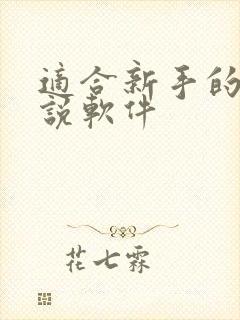 適合新手的
說軟件
花七霖